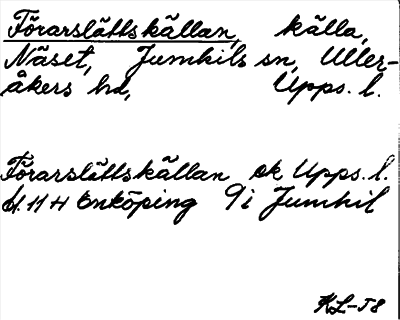 Förarslättskällan, källa,
Näset, Jumkils sn, Uller-
åkers hd, Upps. l.
Förarslättskällan ek Upps. l.
bl. 11 H Enköping 9i Jumkil
KL-58